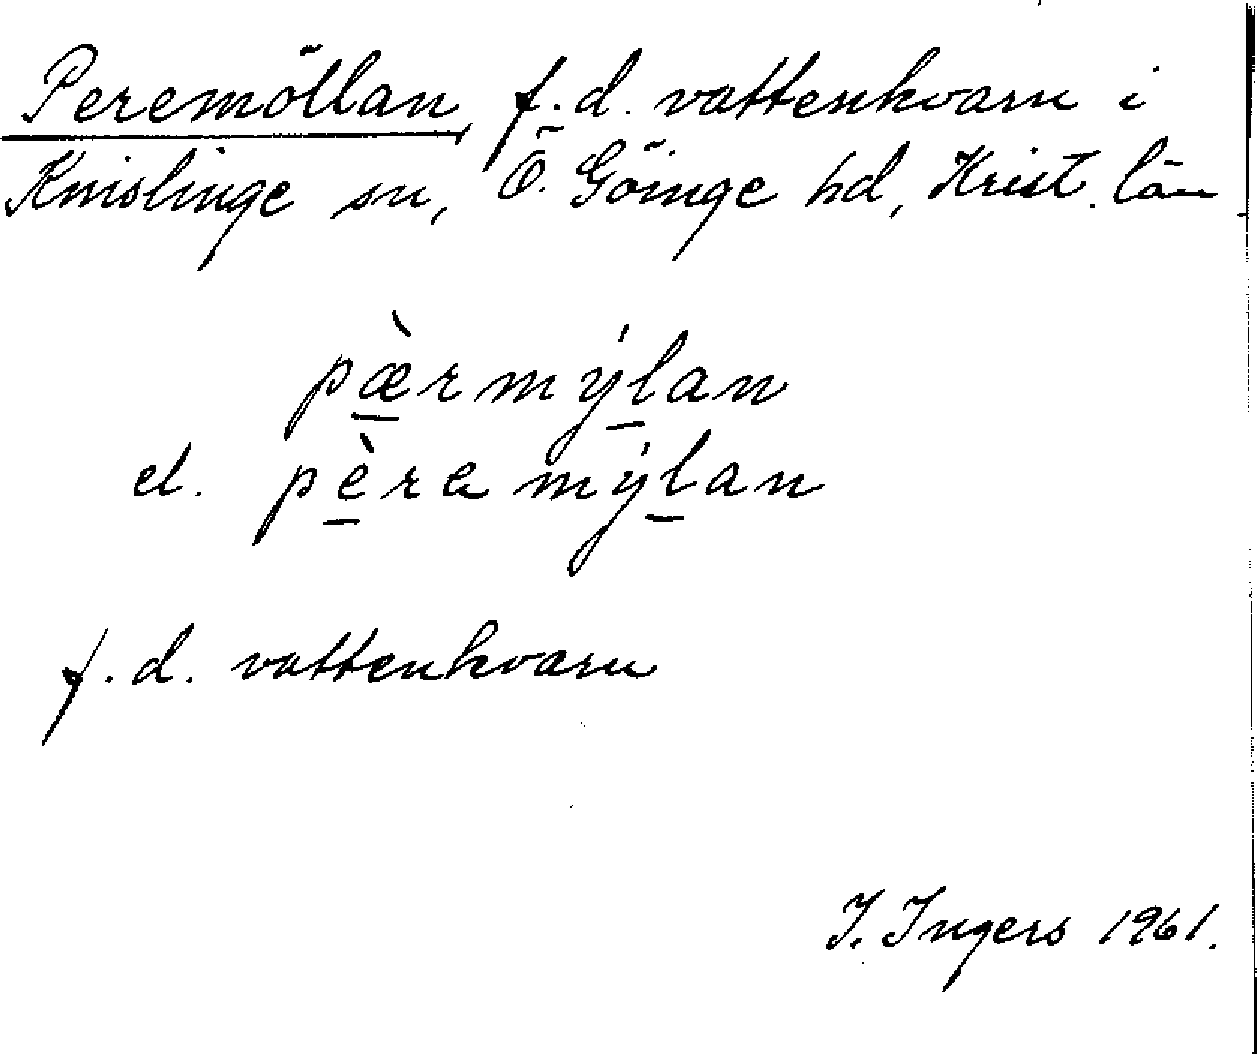 Peremöllan, f.d. vattenkvarn i
Knislinge sn, Ö. Göinge hd, Krist. län
pæ̀rmýlan
el. pèrəmýlan
f.d. vattenkvarn
I. Ingers 1961.